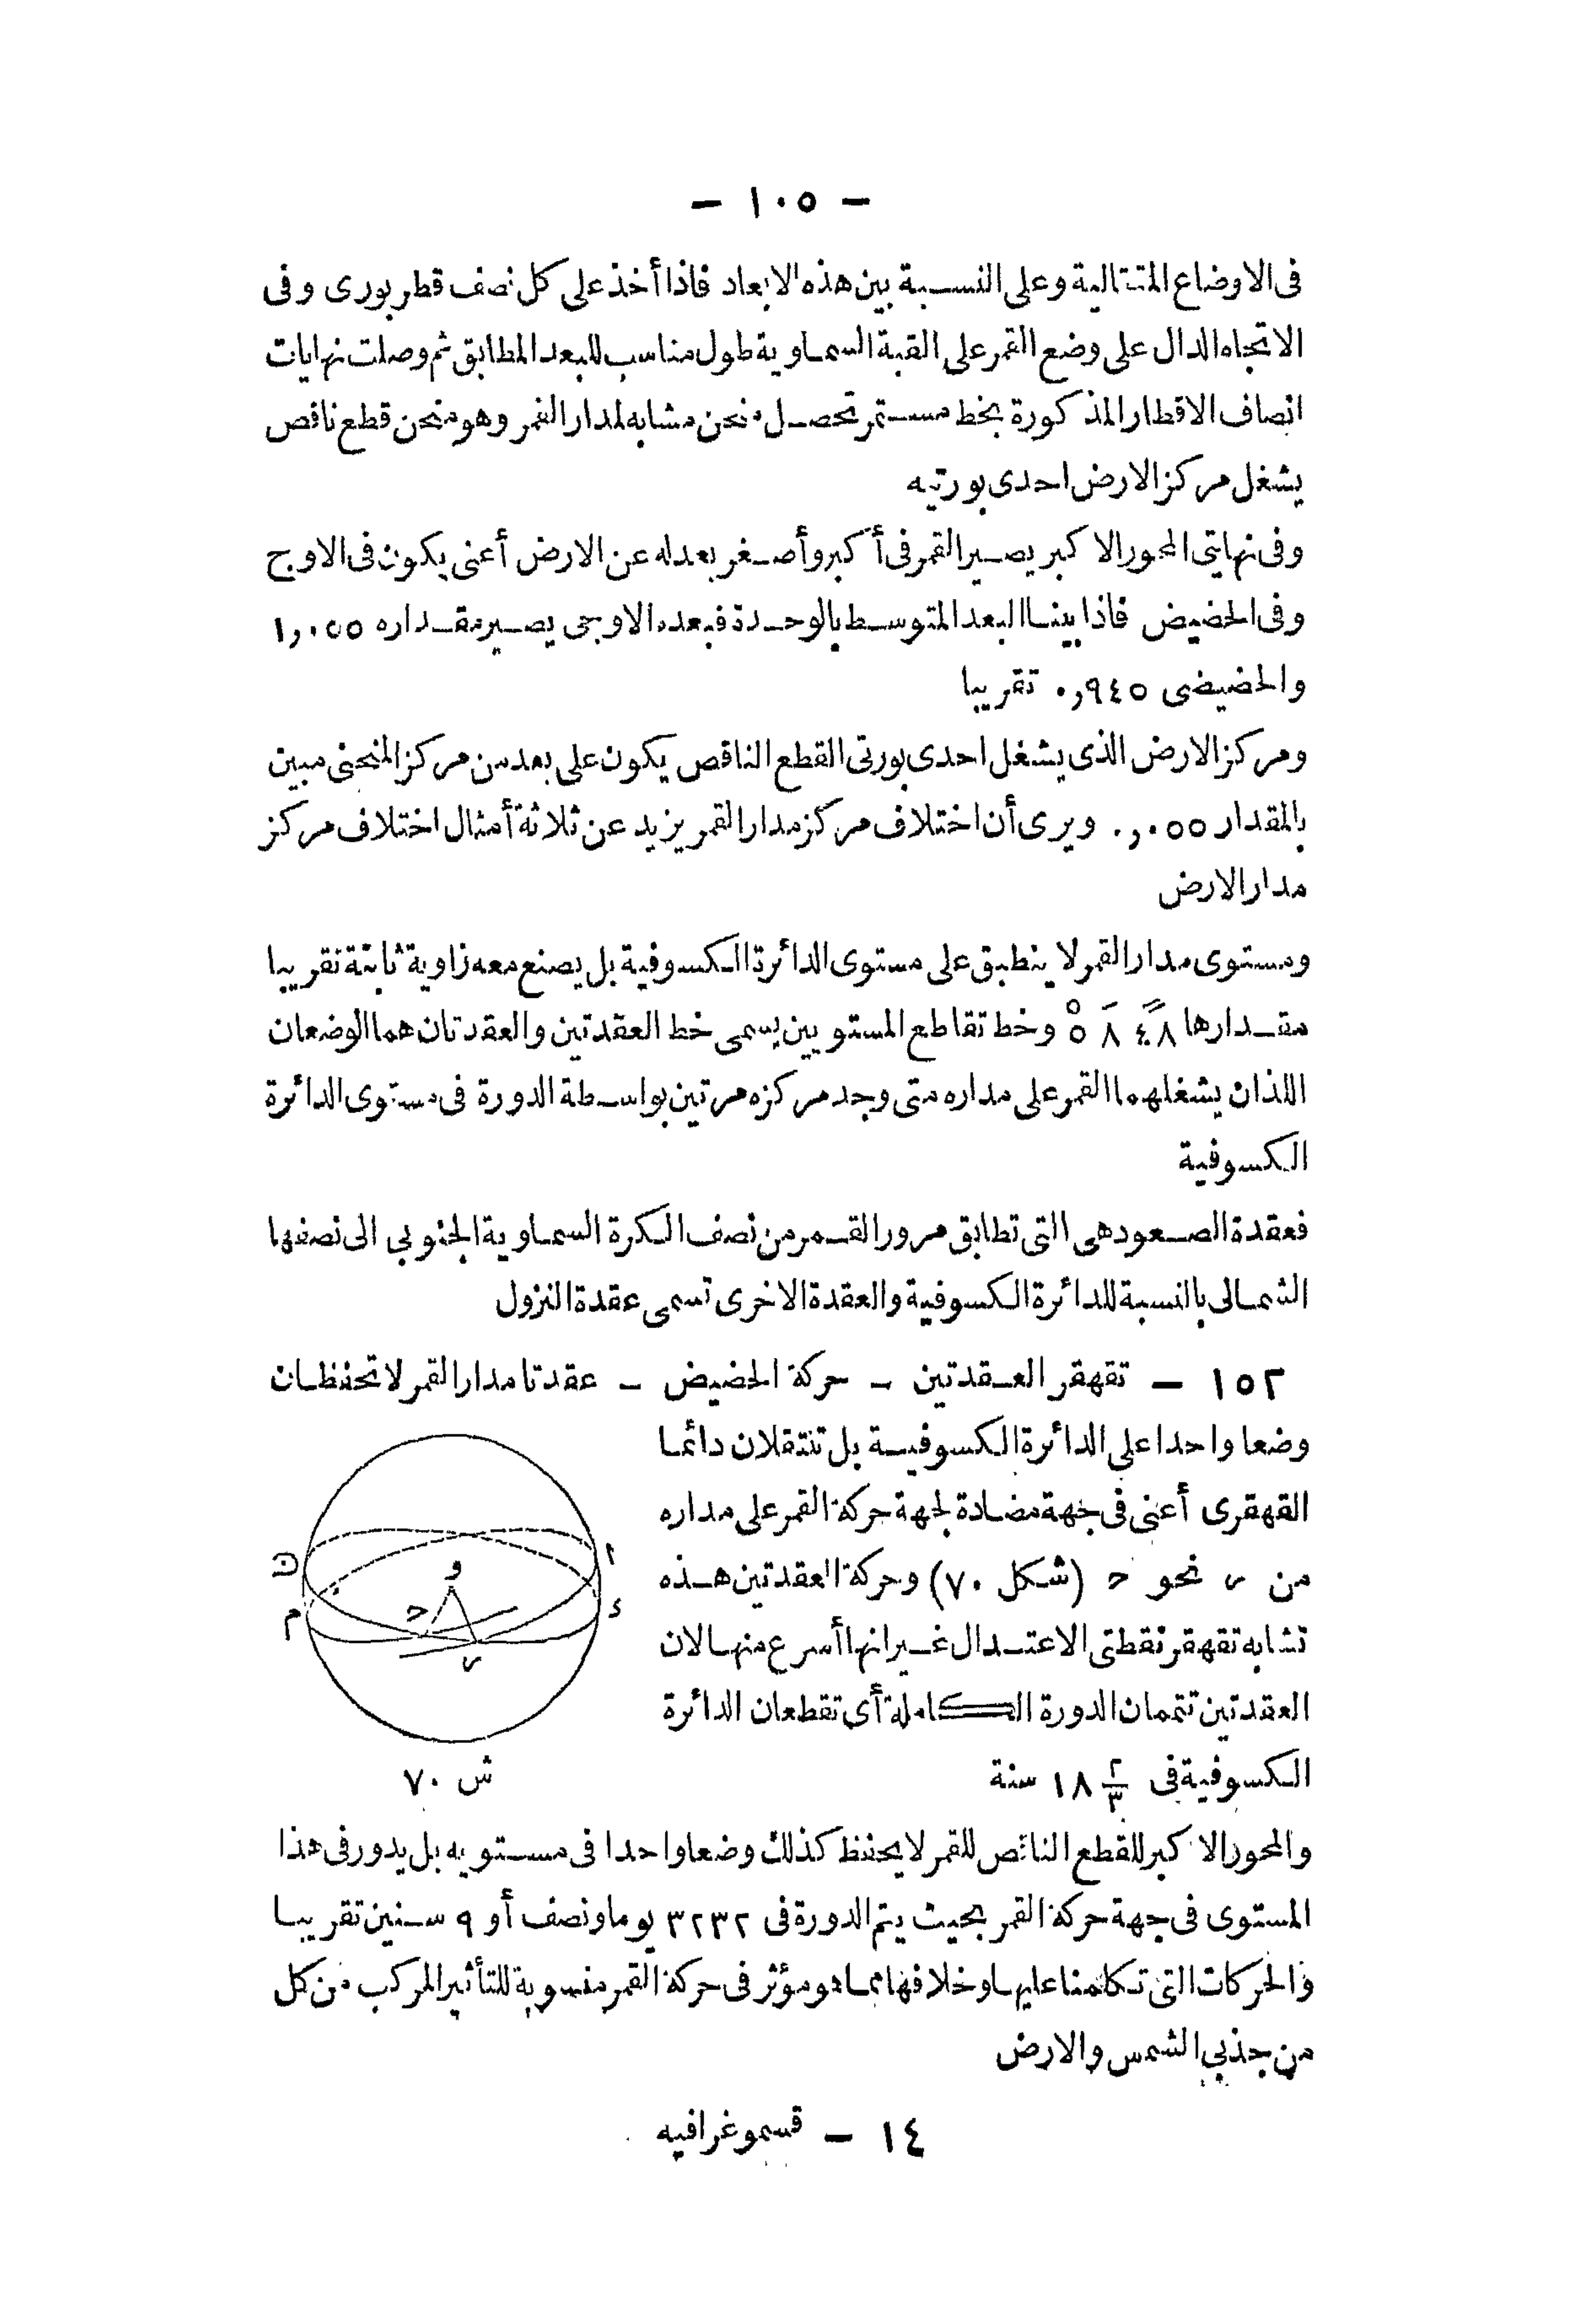 — ١٠٥ —
فى الاوضاع المتتالية وعلى النسبة بين هذه الابعاد فاذا أخذ على كل نصف قطر بورى وفى
الاتجاه الدال على وضع القمر على القبة السماوية طول مناسب للبعد المطابق ثم وصلت نهايات
انصاف الاقطار المذكورة بخط مستمر تحصل منحن مشابه لمدار القمر وهو منحن قطع ناقص
يشغل مركز الارض احدى بورتيه
وفى نهايتى المحور الاكبر يصير القمر فى أكبر وأصغر بعد له عن الارض أعنى يكون فى الاوج
وفى الحضيض فاذا بينا البعد المتوسط بالوحدة فبعده الاوجى يصير مقداره ١,٠٥٥
والحضيضى ٠,٩٤٥ تقريبا
ومركز الارض الذى يشغل احدى بورتى القطع الناقص يكون على بعد من مركز المنحنى مبين
بالمقدار ٠,٠٥٥ ويرى أن اختلاف مركز مدار القمر يزيد عن ثلاثة أمثال اختلاف مركز
مدار الارض
ومستوى مدار القمر لا ينطبق على مستوى الدائرة الكسوفية بل يصنع معه زاوية ثابتة تقريبا
مقدارها ٥° ٨′ ٤٨″ وخط تقاطع المستويين يسمى خط العقدتين والعقدتان هما الوضعان
اللذان يشغلهما القمر على مداره متى وجد مركزه مرتين بواسطة الدورة فى مستوى الدائرة
الكسوفية
فعقدة الصعود هى التى تطابق مرور القمر من نصف الكرة السماوية الجنوبى الى نصفها
الشمالى بالنسبة للدائرة الكسوفية والعقدة الاخرى تسمى عقدة النزول
١٥٢ — تقهقر العقدتين - حركة الحضيض - عقدتا مدار القمر لا تحفظان
وضعا واحدا على الدائرة الكسوفية بل تنتقلان دائما
القهقرى أعنى فى جهة مضادة لجهة حركة القمر على مداره
من ں نحو ح (شكل ٧٠) وحركة العقدتين هذه
تشابه تقهقر نقطتى الاعتدال غير انها أسرع منها لان
العقدتين تتممان الدورة الكاملة أى تقطعان الدائرة
الكسوفية فى ١٨ ٢/٣ سنة
ا
ن
و
ح
م
ء
ں
ش ٧٠
والمحور الاكبر للقطع الناقص للقمر لا يحفظ كذلك وضعا واحدا فى مستويه بل يدور فى هذا
المستوى فى جهة حركة القمر بحيث يتم الدورة فى ٣٢٣٢ يوما ونصف أو ٩ سنين تقريبا
والحركات التى تكلمنا عليها وخلافها مما هو مؤثر فى حركة القمر منسوبة للتأثير المركب من كل
من جذبى الشمس والارض
١٤ — قسموغرافيه